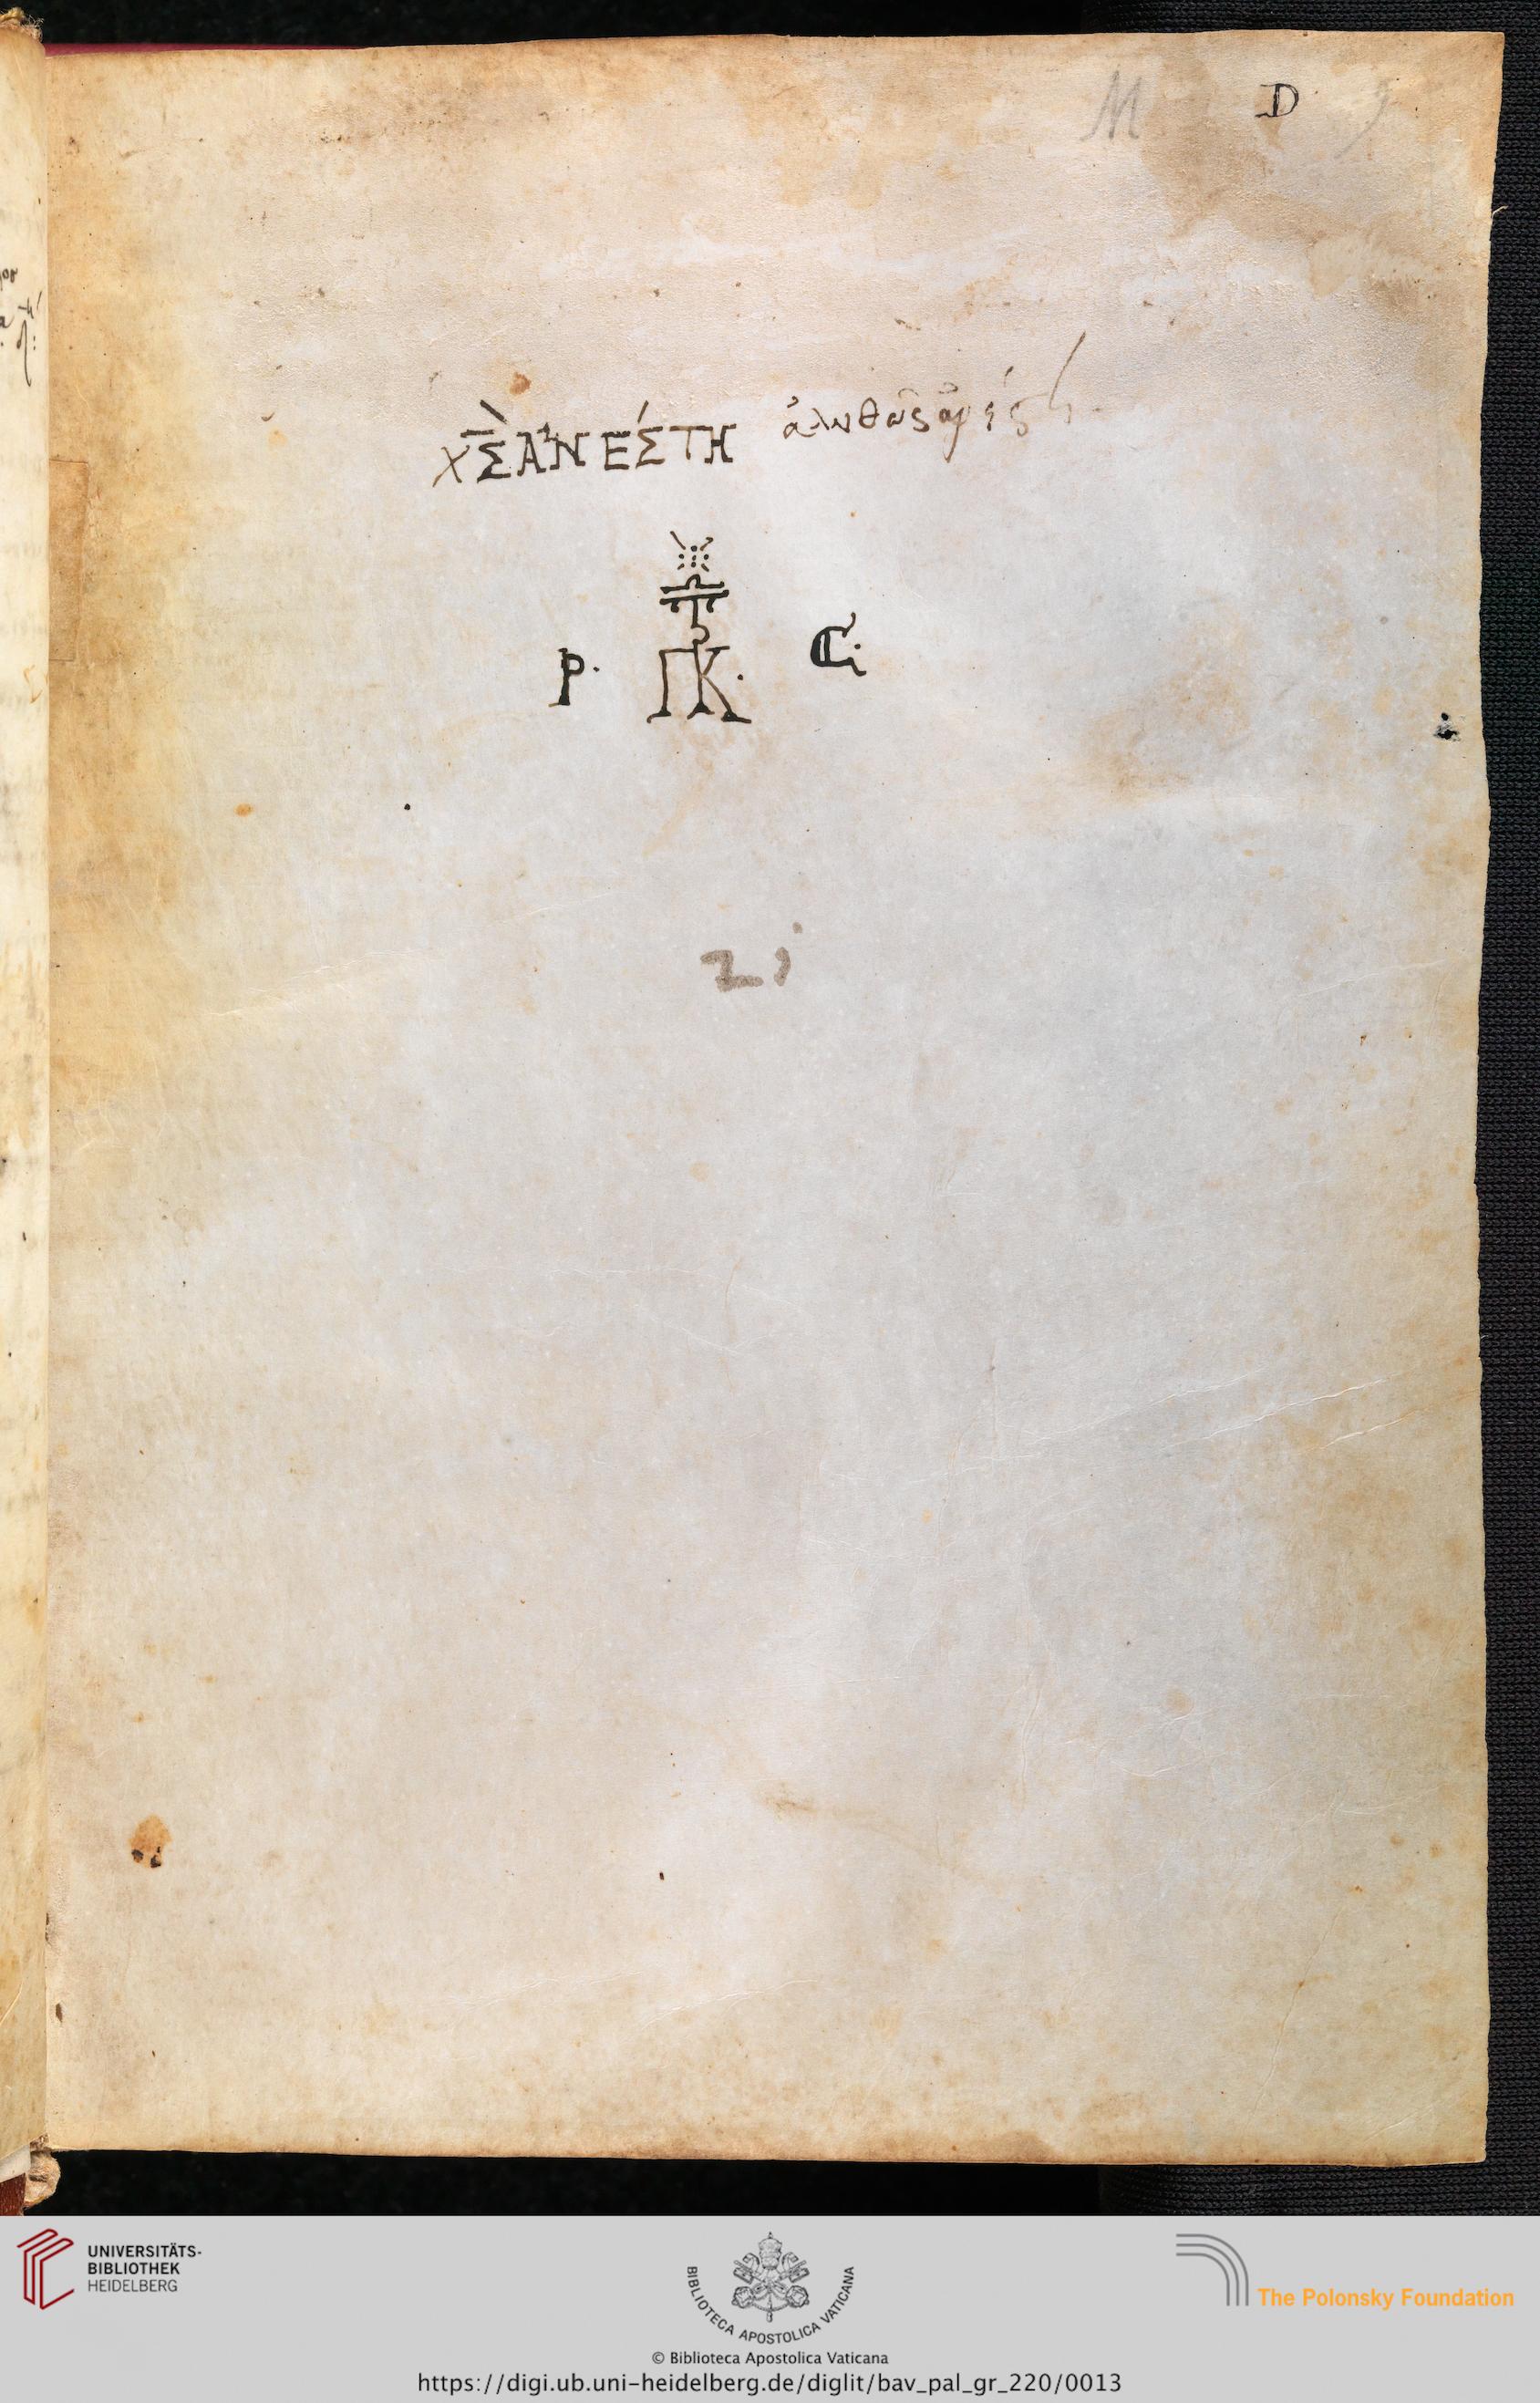 M D
ΧΣ ἈΝΕΣΤΗ ἀληθῶς
P. ΠΚ. C
21
UNIVERSITÄTS-
BIBLIOTHEK
HEIDELBERG
BIBLIOTECA APOSTOLICA VATICANA
The Polonsky Foundation
© Biblioteca Apostolica Vaticana
https://digi.ub.uni-heidelberg.de/diglit/bav_pal_gr_220/0013